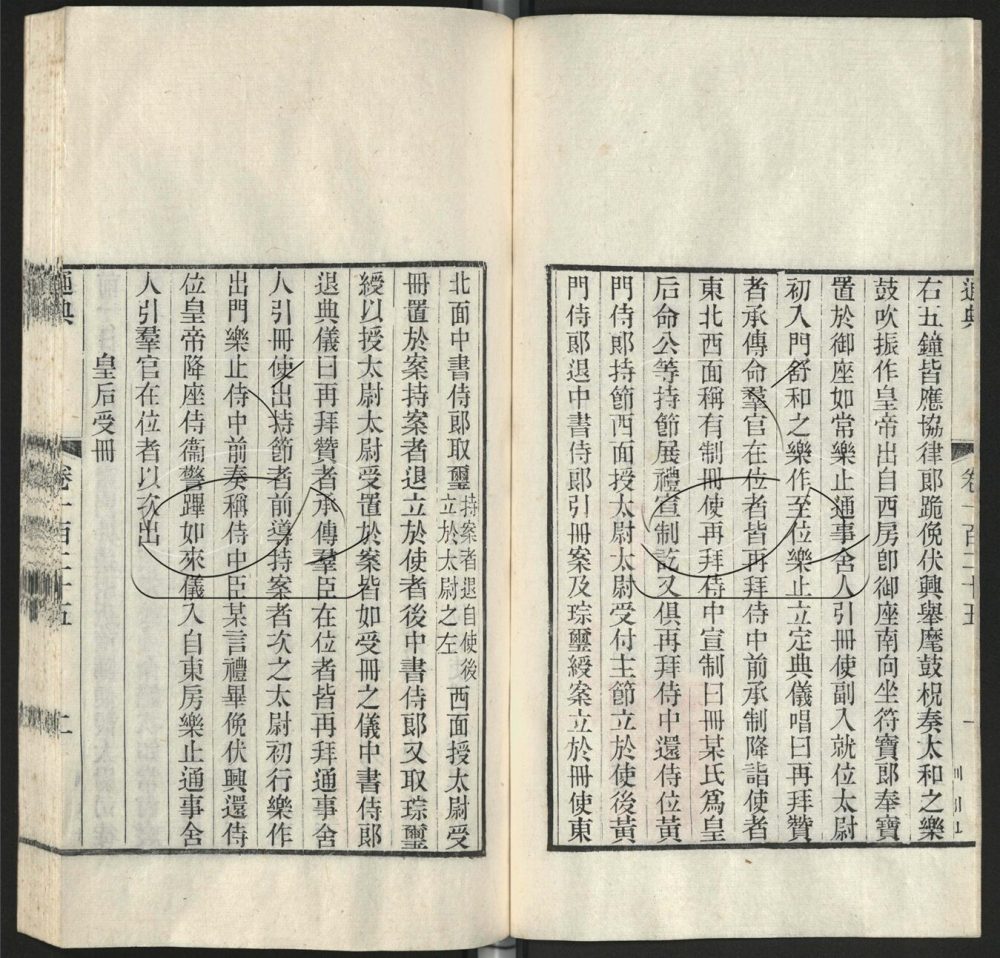 通典
卷一百二十五
一
右五鐘皆應協律郎跪俛伏興舉麾鼓柷奏太和之樂
鼓吹振作皇帝出自西房卽御座南向坐符寶郎奉寶
置於御座如常樂止通事舍人引冊使副入就位太尉
初入門舒和之樂作至位樂止立定典儀唱曰再拜贊
者承傳命羣官在位者皆再拜侍中前承制降詣使者
東北西面稱有制冊使再拜侍中宣制曰冊某氏爲皇
后命公等持節展禮宣制訖又俱再拜侍中還侍位黃
門侍郎持節西面授太尉太尉受付主節立於使後黃
門侍郎退中書侍郎引冊案及琮璽綬案立於冊使東
北面中書侍郎取璽持案者退自使後立於太尉之左西面授太尉受
冊置於案持案者退立於使者後中書侍郎又取琮璽
綬以授太尉太尉受置於案皆如受冊之儀中書侍郎
退典儀曰再拜贊者承傳羣臣在位者皆再拜通事舍
人引冊使出持節者前導持案者次之太尉初行樂作
出門樂止侍中前奏稱侍中臣某言禮畢俛伏興還侍
位皇帝降座侍衞警蹕如來儀入自東房樂止通事舍
人引羣官在位者以次出
皇后受冊
通典
卷一百二十五
二